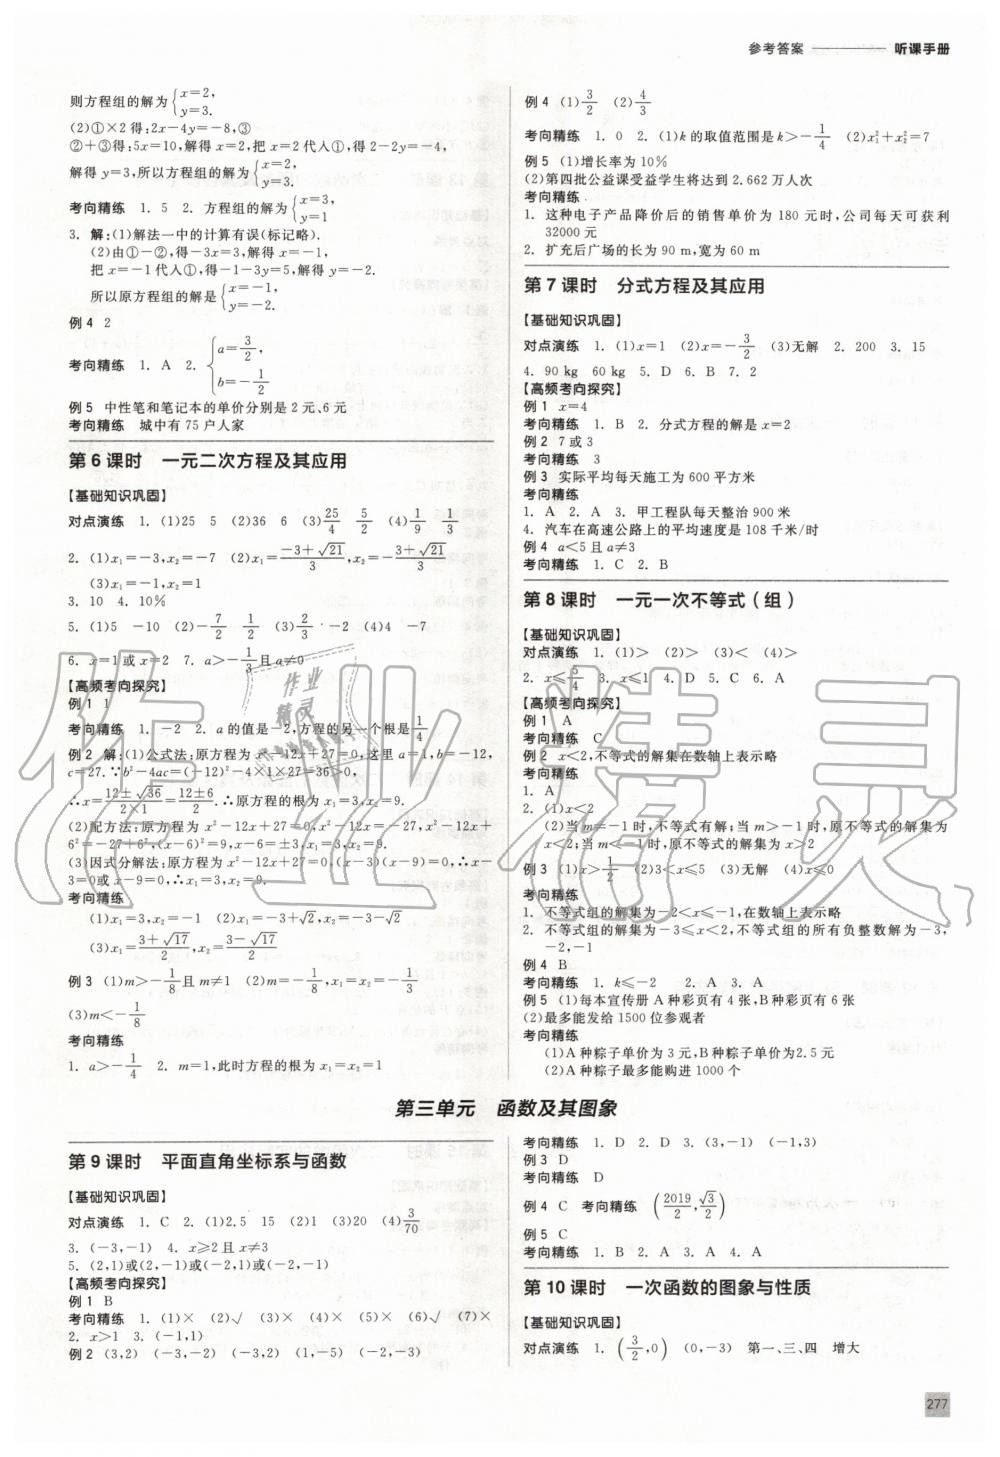 参考答案 听课手册
则方程组的解为{x=2, y=3.
(2)①×2得:2x-4y=-8,③
②+③得:5x=10,解得x=2,把x=2代入①,得2-2y=-4,
解得y=3,所以方程组的解为{x=2, y=3.
考向精练 1. 5 2. 方程组的解为{x=3, y=1
3. 解:(1)解法一中的计算有误(标记略).
(2)由①-②,得-3x=3,解得x=-1,
把x=-1代入①,得-1-3y=5,解得y=-2.
所以原方程组的解是{x=-1, y=-2.
例4 2
考向精练 1. A 2. {a=3/2, b=-1/2
例5 中性笔和笔记本的单价分别是2元、6元
考向精练 城中有75户人家
第6课时 一元二次方程及其应用
【基础知识巩固】
对点演练 1. (1)25 5 (2)36 6 (3)25/4 5/2 (4)1/9 1/3
2. (1)x₁=-3,x₂=-7 (2)x₁=(-3+√21)/3,x₂=-(3+√21)/3
(3)x₁=-1,x₂=1
3. 10 4. 10%
5. (1)5 -10 (2)-7/2 1/2 (3)2/3 -2 (4)4 -7
6. x=1或x=2 7. a>-1/3且a≠0
【高频考向探究】
例1 1
考向精练 1. -2 2. a的值是-2,方程的另一个根是1/4
例2 解:(1)公式法:原方程为x²-12x+27=0,这里a=1,b=-12,
c=27.∵b²-4ac=(-12)²-4×1×27=36>0,
∴x=(12±√36)/(2×1)=(12±6)/2.∴原方程的根为x₁=3,x₂=9.
(2)配方法:原方程为x²-12x+27=0,x²-12x=-27,x²-12x+
6²=-27+6²,(x-6)²=9,x-6=±3,x₁=3,x₂=9.
(3)因式分解法:原方程为x²-12x+27=0,(x-3)(x-9)=0,∴x-
3=0或x-9=0,∴x₁=3,x₂=9.
考向精练
(1)x₁=3,x₂=-1 (2)x₁=-3+√2,x₂=-3-√2
(3)x₁=(3+√17)/2,x₂=(3-√17)/2
例3 (1)m>-1/8且m≠1 (2)m=-1/8,x₁=x₂=-1/3
(3)m<-1/8
考向精练
1. a>-1/4 2. m=1,此时方程的根为x₁=x₂=1
例4 (1)3/2 (2)4/3
考向精练 1. 0 2. (1)k的取值范围是k>-1/4 (2)x₁²+x₂²=7
例5 (1)增长率为10%
(2)第四批公益课受益学生将达到2.662万人次
考向精练
1. 这种电子产品降价后的销售单价为180元时,公司每天可获利
32000元
2. 扩充后广场的长为90 m,宽为60 m
第7课时 分式方程及其应用
【基础知识巩固】
对点演练 1. (1)x=1 (2)x=-3/2 (3)无解 2. 200 3. 15
4. 90 kg 60 kg 5. D 6. B 7. 2
【高频考向探究】
例1 x=4
考向精练 1. B 2. 分式方程的解是x=2
例2 7或3
考向精练 3
例3 实际平均每天施工为600平方米
考向精练
1. A 2. A 3. 甲工程队每天整治900米
4. 汽车在高速公路上的平均速度是108千米/时
例4 a<5且a≠3
考向精练 1. C 2. B
第8课时 一元一次不等式(组)
【基础知识巩固】
对点演练 1. (1)> (2)> (3)< (4)>
2. x≤5/4 3. x≤1 4. D 5. C 6. A
【高频考向探究】
例1 A
考向精练 C
例2 x<2,不等式的解集在数轴上表示略
考向精练
1. A
2. (1)x<2
(2)当m≠-1时,不等式有解;当m>-1时,原不等式的解集为
x<2;当m<-1时,原不等式的解集为x>2
例3 (1)x>1/2 (2)3<x≤5 (3)无解 (4)x≤0
考向精练
1. 不等式组的解集为-2<x≤-1,在数轴上表示略
2. 不等式组的解集为-3≤x<2,不等式组的所有负整数解为-3,
-2,-1
例4 B
考向精练 1. k≤-2 2. A 3. A
例5 (1)每本宣传册A种彩页有4张,B种彩页有6张
(2)最多能发给1500位参观者
考向精练
(1)A种粽子单价为3元,B种粽子单价为2.5元
(2)A种粽子最多能购进1000个
第三单元 函数及其图象
第9课时 平面直角坐标系与函数
【基础知识巩固】
对点演练 1. C 2. (1)2.5 15 (2)1 (3)20 (4)3/70
3. (-3,-1) 4. x≥2且x≠3
5. (2,1)或(2,-1)或(-2,1)或(-2,-1)
【高频考向探究】
例1 B
考向精练 1. (1)× (2)√ (3)× (4)× (5)× (6)√ (7)×
2. x>1 3. (-1,1)
例2 (3,2) (-3,-2) (-3,2) (1,-5) (-2,-3)
考向精练 1. D 2. D 3. (3,-1) (-1,3)
例3 D
考向精练 D
例4 C 考向精练 (2019/2,√3/2)
例5 C
考向精练 1. B 2. A 3. A 4. A
第10课时 一次函数的图象与性质
【基础知识巩固】
对点演练 1. (3/2,0) (0,-3) 第一、三、四 增大
277
作业精灵
作业
精灵